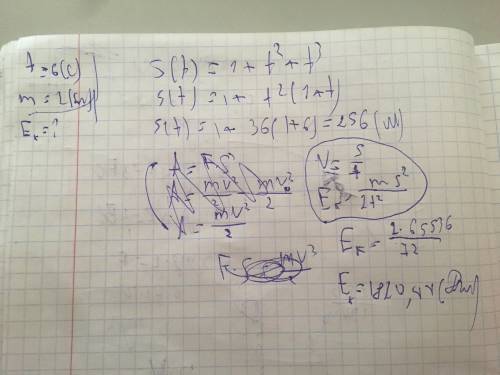 t = 6(c)
m = 2(кг)
Eк = ?
S(t) = 1 + t² + t³
S(t) = 1 + t²(1+t)
S(t) = 1 + 36(1+6) = 256 (м)
A = FS
A = mv²/2 mv₀²/2
A = mv²/2
F·S = mv²
V = S/t
Eк = mS²/2t²
Eк = 2·65536/72
Eк = 1820,44 (Дж)